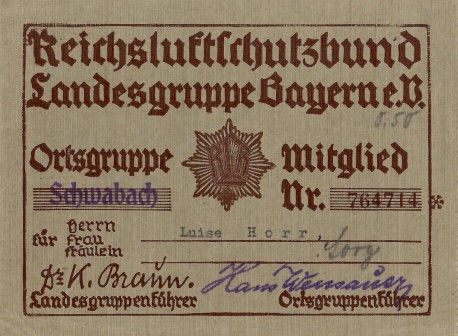 Reichsluftschutzbund
Landesgruppe Bayern e.V.
0.50
Ortsgruppe Mitglied
Schwabach Nr. 764714 *
für Herrn Frau Fräulein
Luise Horr,
Dr K. Braun.
Landesgruppenführer Ortsgruppenführer